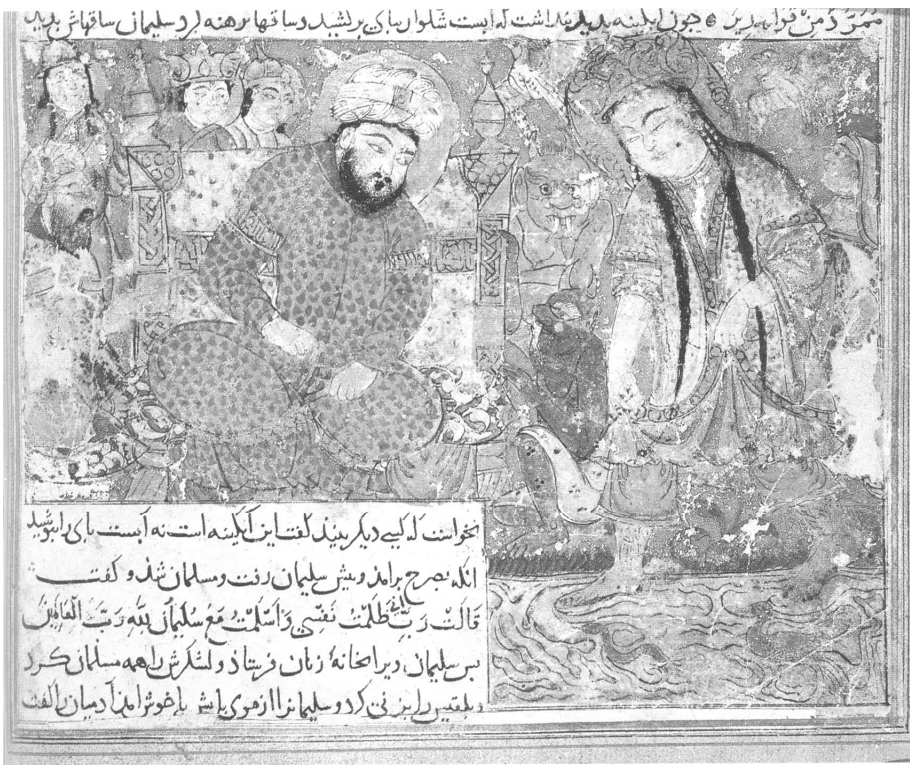 ممرد من قواریر ۞ چون آبگینه بدید بنداشت که آبست شلوار ببای بر کشید و ساقها برهنه کرد سلیمان ساقهاش بدید
نخواست که کسی دیگر بیند گفت این آبگینه است نه آبست بای را ببوشید
انکه بصرح برامذ و بیش سلیمان رفت و مسلمان شذ و کفت
قَالَتْ رَبِّ إِنِّي ظَلَمْتُ نَفْسِي وَأَسْلَمْتُ مَعَ سُلَيْمَانَ لِلَّهِ رَبِّ الْعَالَمِينَ
بس سلیمان ویرا بخانهٔ زنان فرستاذ و لشکرش را همه مسلمان کرد
و بلقیس را بزنی کرد و سلیمانرا از موی باش ناخوش امذ آدمیان را کفت